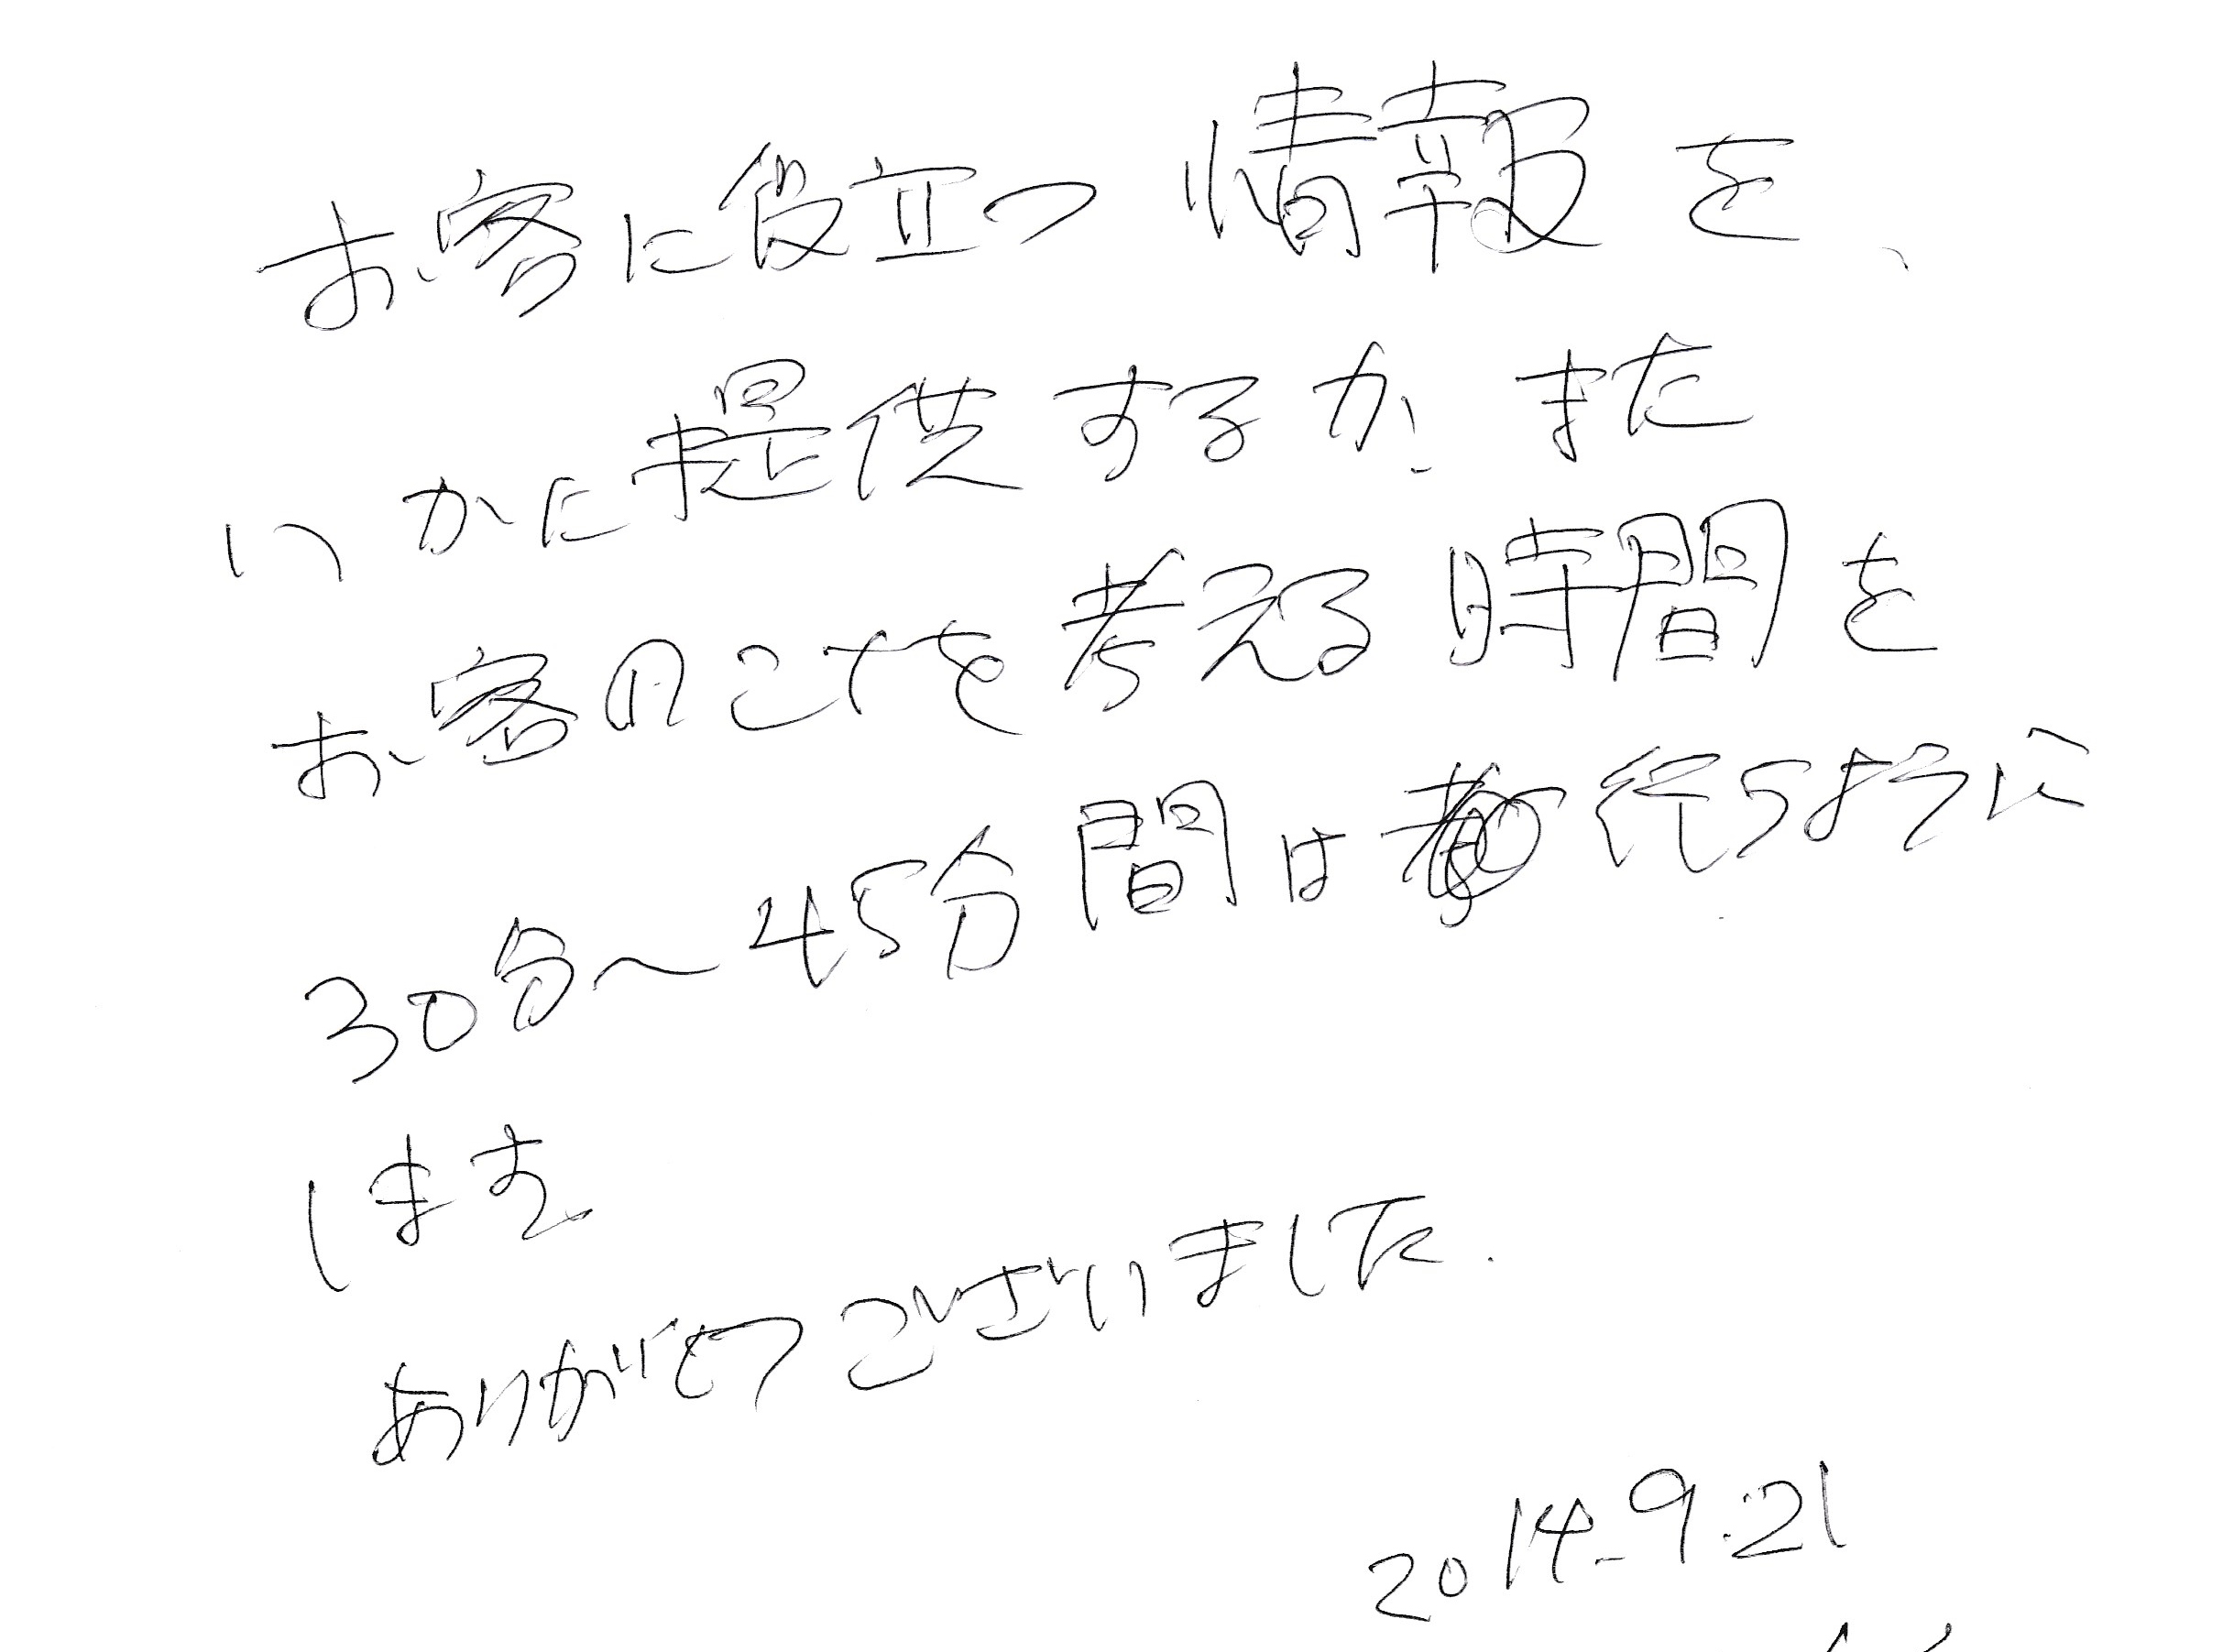 お客に役立つ情報を、
いかに提供するか、また
お客のことを考える時間を
30分〜45分間は行うように
します
ありがとうございました.
2014.9.21